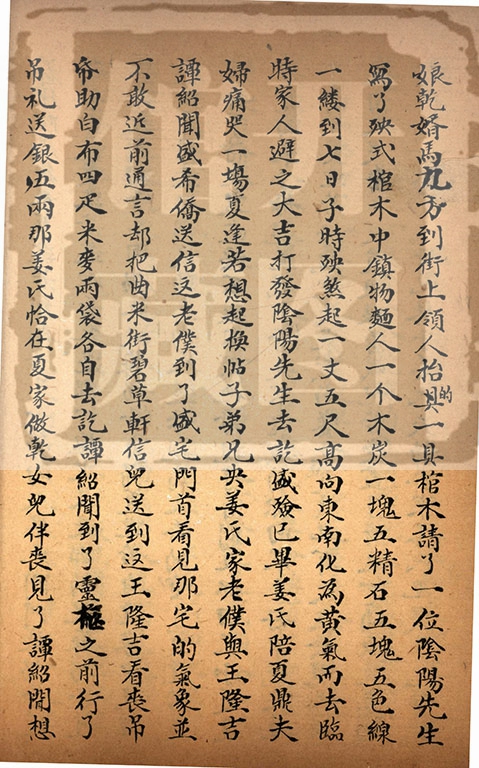 娘乾婿馬九方到街上領人抬的具一具棺木請了一位陰陽先生
寫了殃式棺木中鎮物麵人一个木炭一塊五精石五塊五色線
一縷到七日子時殃煞起一丈五尺高向東南化為黃氣而去臨
時家人避之大吉打發陰陽先生去訖盛殮已畢姜氏陪夏鼎夫
婦痛哭一場夏逢若想起換帖子弟兄央姜氏家老僕與王隆吉
譚紹聞盛希僑送信這老僕到了盛宅門首看見那宅的氣象並
不敢近前通言却把曲米街碧草軒信兒送到這王隆吉看喪吊
帋助白布四疋米麥兩袋各自去訖譚紹聞到了靈柩之前行了
吊礼送銀伍兩那姜氏恰在夏家做乾女兒伴喪見了譚紹聞想